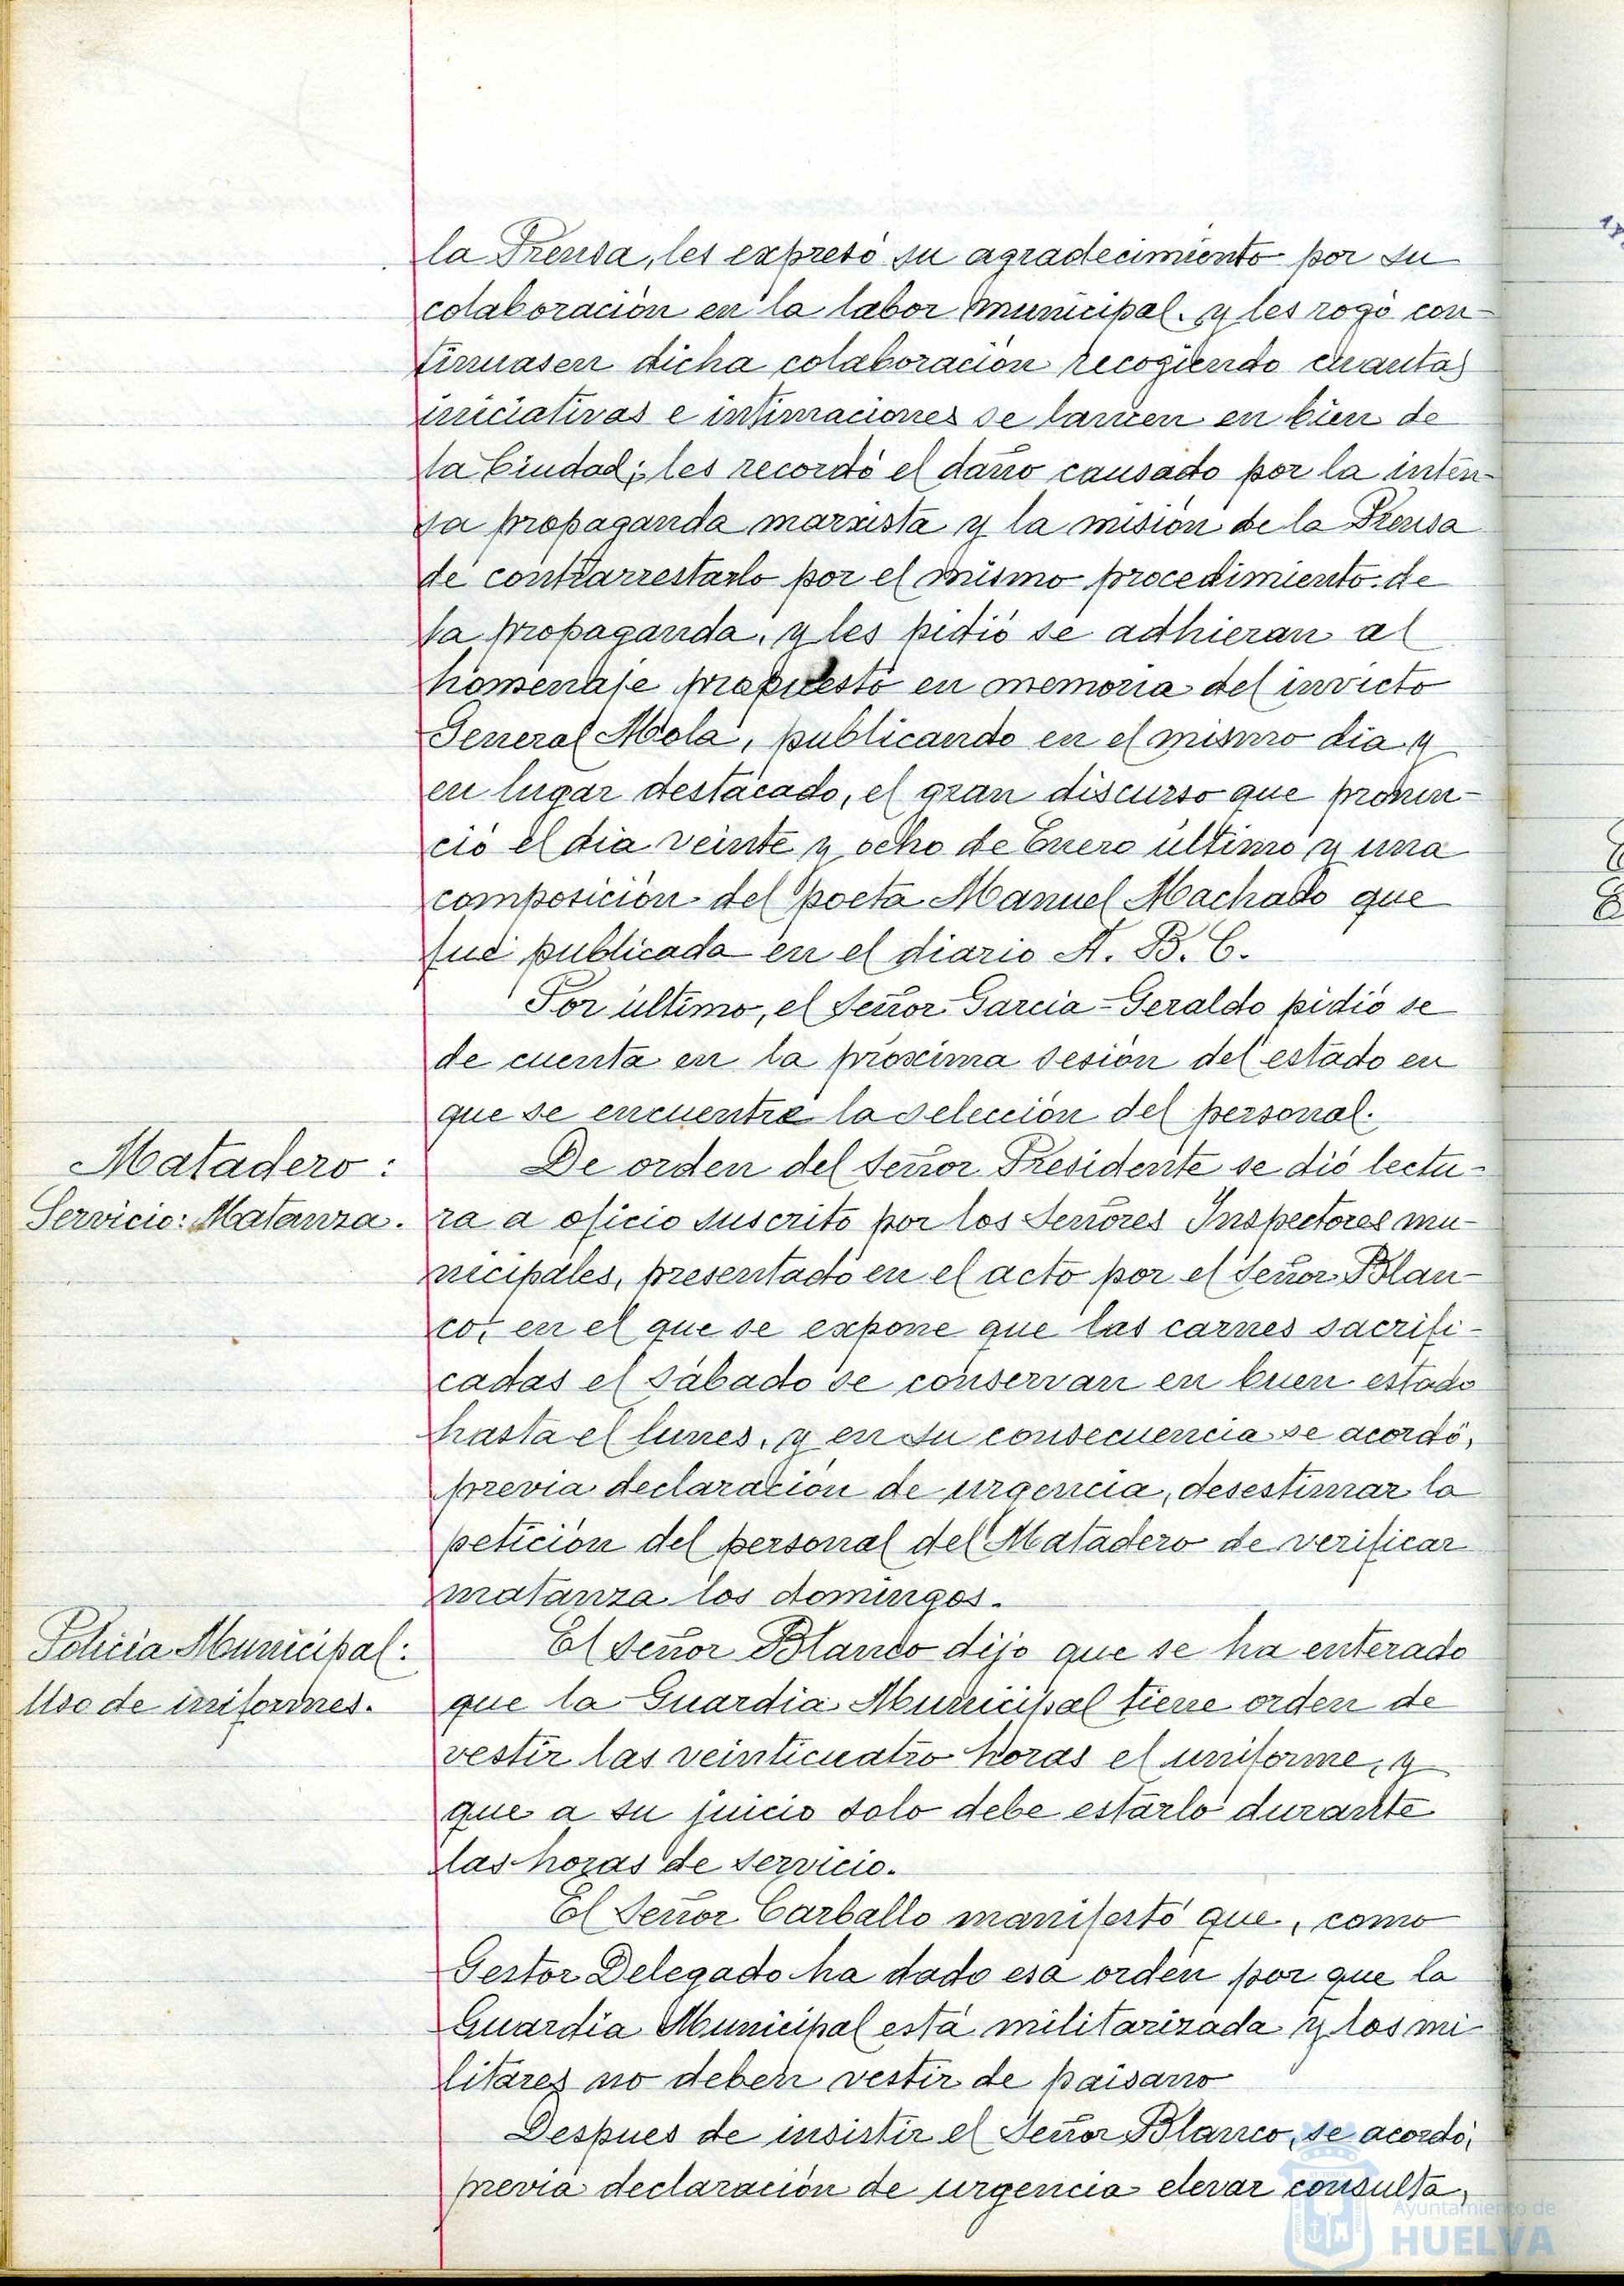 la Prensa, les expresó su agradecimiento por su
colaboración en la labor municipal. y les rogó con-
tinuasen dicha colaboración recogiendo cuantas
iniciativas e intimaciones se lancen en bien de
la Ciudad; les recordó el daño causado por la inten-
sa propaganda marxista y la misión de la Prensa
de contrarrestarlo por el mismo procedimiento de
la propaganda, y les pidió se adhieran al
homenaje propuesto en memoria del invicto
General Mola, publicando en el mismo dia y
en lugar destacado, el gran discurso que pronun-
ció el dia veinte y ocho de Enero último y una
composición del poeta Manuel Machado que
fué publicada en el diario A. B. C.
Por último, el Señor Garcia-Geraldo pidió se
de cuenta en la próxima sesión del estado en
que se encuentra la selección del personal.
Matadero:
Servicio: Matanza.
De orden del Señor Presidente se dió lectu-
ra a oficio suscrito por los Señores Inspectores mu-
nicipales, presentado en el acto por el Señor Blan-
co, en el que se expone que las carnes sacrifi-
cadas el sábado se conservan en buen estado
hasta el lunes, y en su consecuencia se acordó,
previa declaración de urgencia, desestimar la
petición del personal del Matadero de verificar
matanza los domingos.
Policia Municipal:
Uso de uniformes.
El Señor Blanco dijo que se ha enterado
que la Guardia Municipal tiene orden de
vestir las veinticuatro horas el uniforme, y
que a su juicio solo debe estarlo durante
las horas de servicio.
El Señor Carballo manifestó que, como
Gestor Delegado ha dado esa orden por que la
Guardia Municipal está militarizada y los mi-
litares no deben vestir de paisano
Despues de insistir el Señor Blanco, se acordó,
previa declaración de urgencia elevar consulta,
Ayuntamiento de
HUELVA